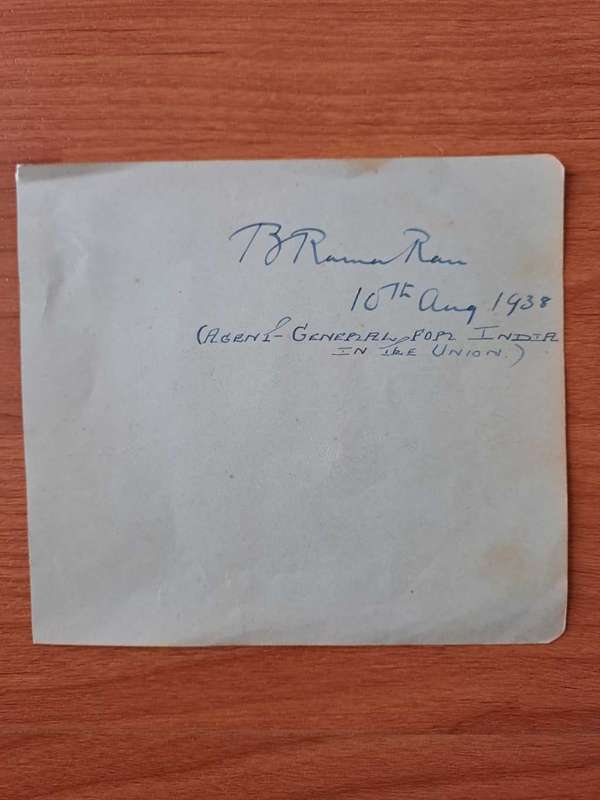 B Rama Rau
10th Aug 1938
(AGENT-GENERAL FOR INDIA
IN THE UNION.)